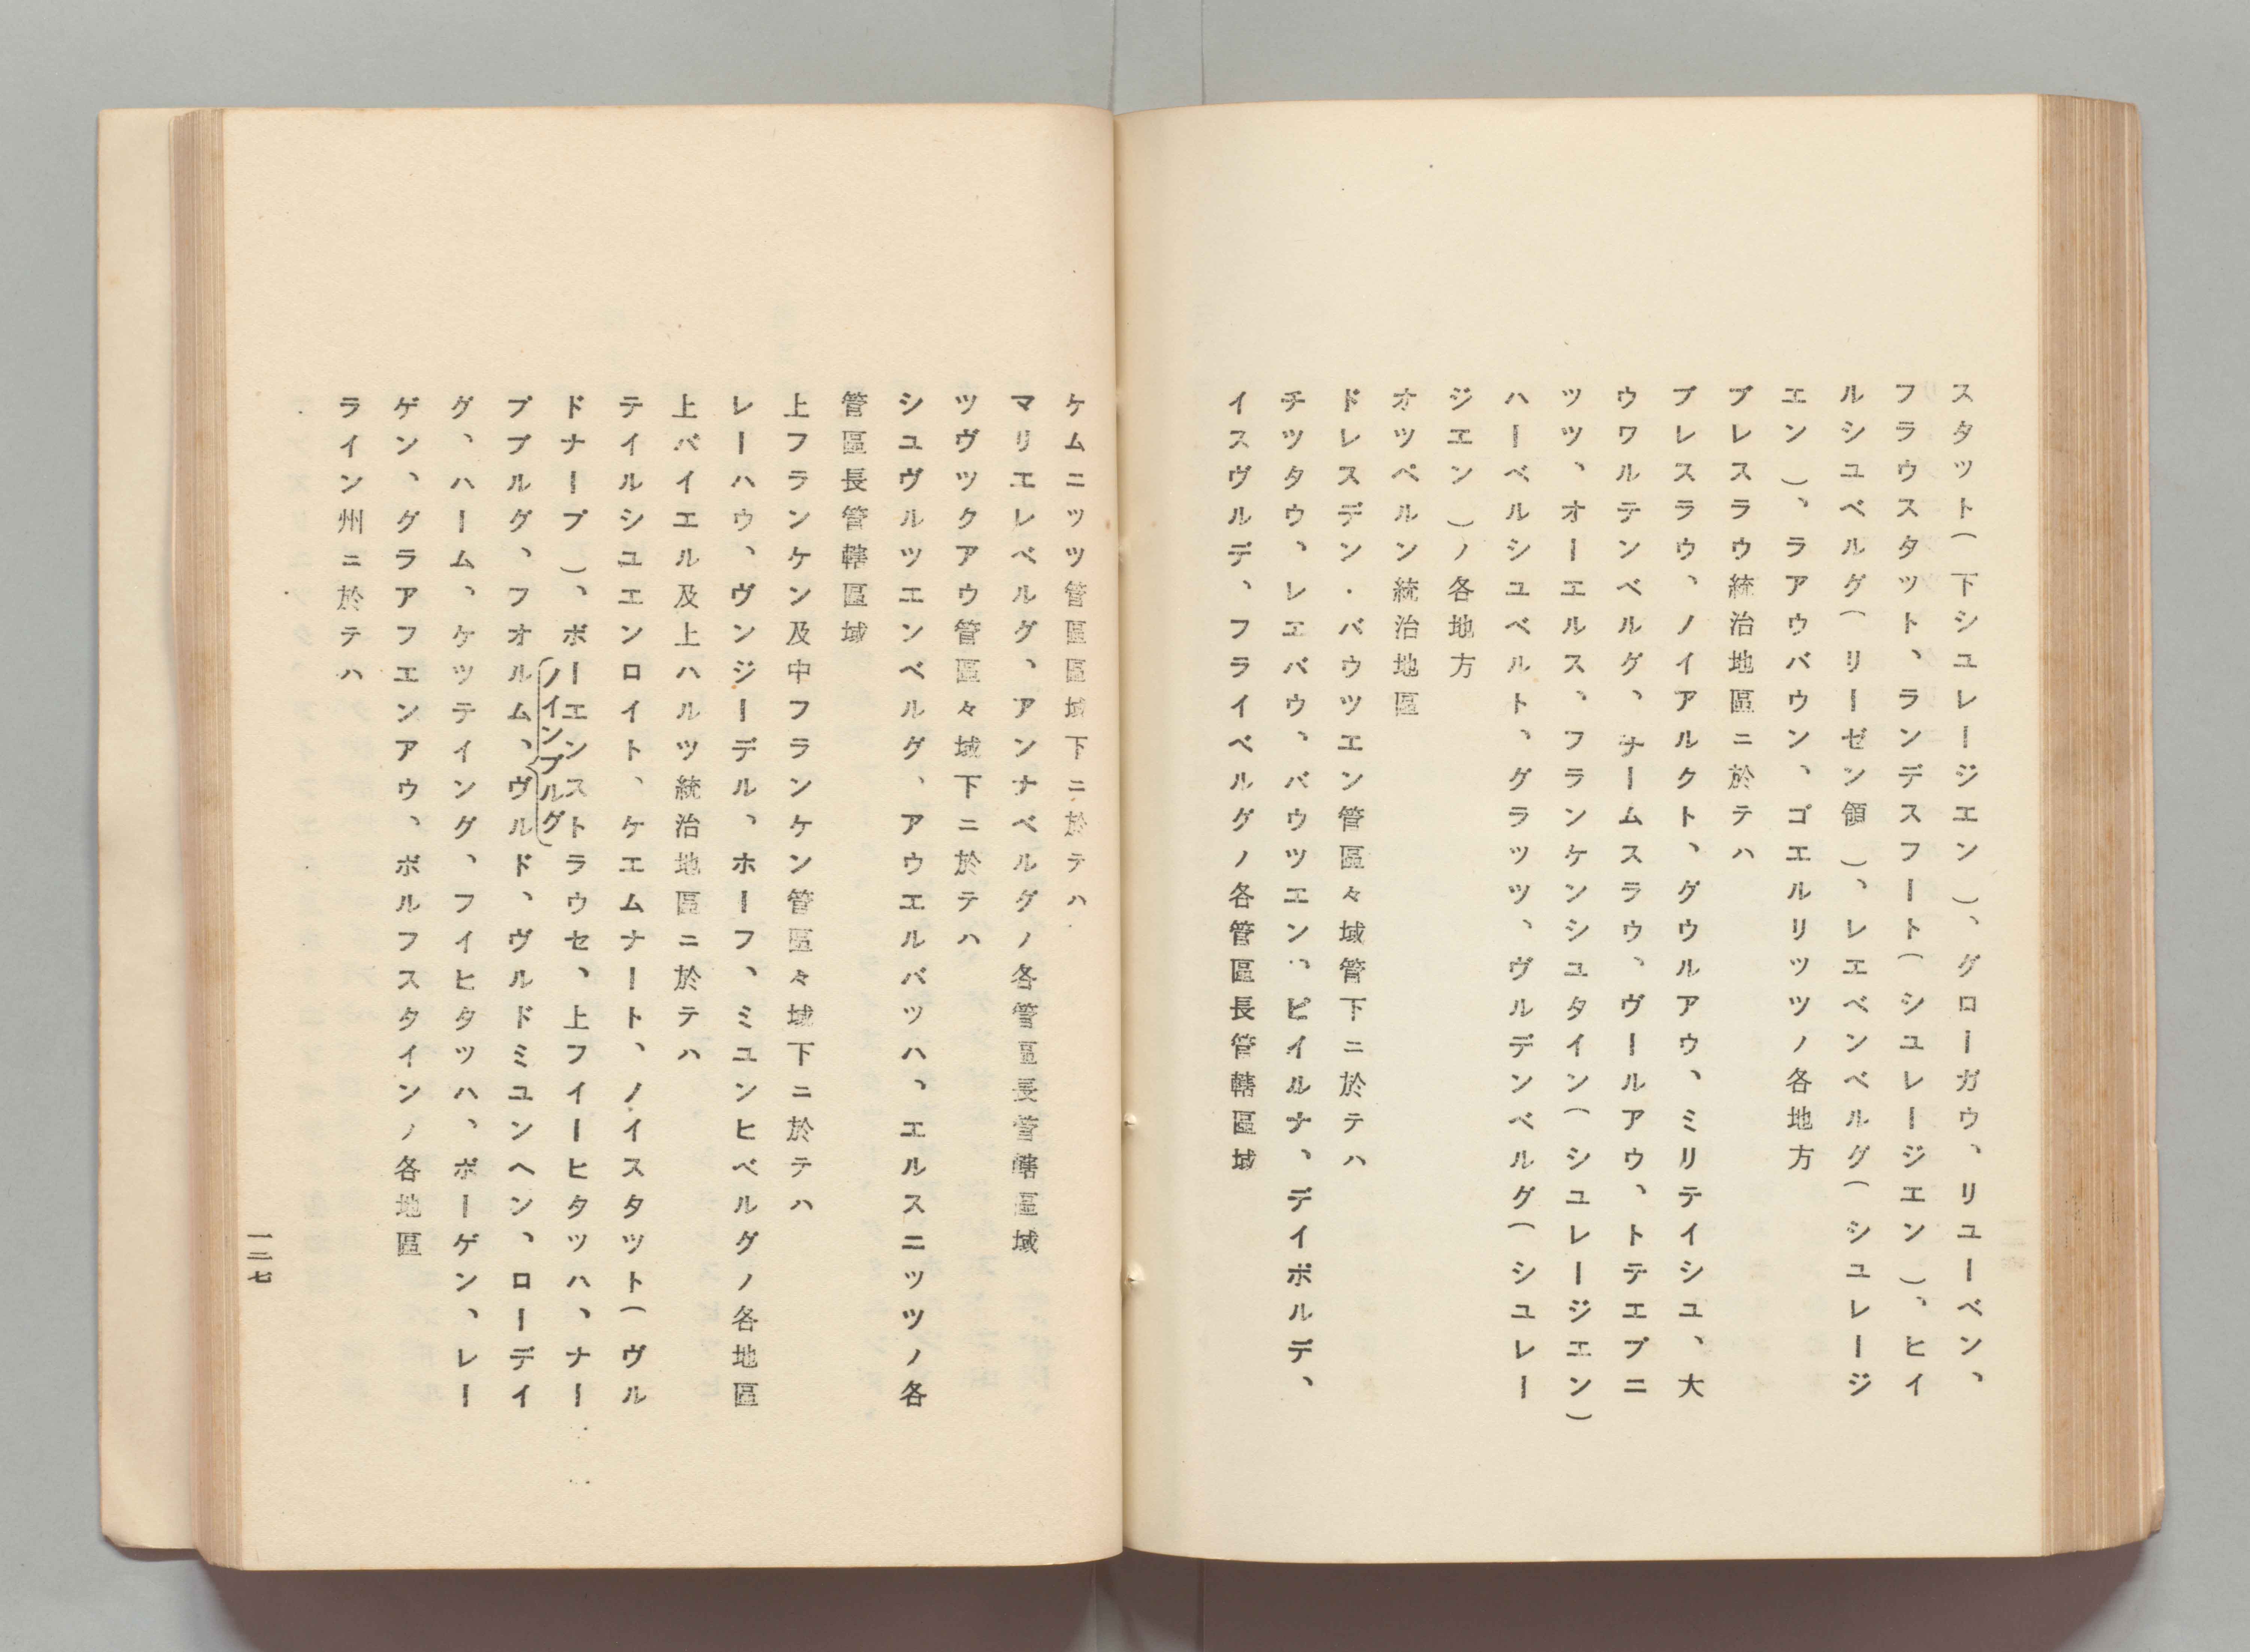 スタット(下シユレージエン)、グローガウ、リユーベン、
フラウスタット、ランデスフート(シユレージエン)、ヒイ
ルシユベルグ(リーゼン領)、レエベンベルグ(シユレージ
エン)、ラアウバウン、ゴエルリツツノ各地方
ブレスラウ統治地區ニ於テハ
ブレスラウ、ノイアルクト、グウルアウ、ミリテイシユ、大
ウワルテンベルグ、ナームスラウ、ヴールアウ、トテエプニ
ツツ、オーエルス、フランケンシユタイン(シユレージエン)
ハーベルシユベルト、グラツツ、ヴルデンベルグ(シユレー
ジエン)ノ各地方
オツペルン統治地區
ドレスデン・バウツエン管區々域管下ニ於テハ
チツタウ、レエバウ、バウツエン、ピイルナ、デイポルデ、
イスヴルデ、フライベルグノ各管區長管轄區域
ケムニツツ管區區域下ニ於テハ
マリエレベルグ、アンナベルグノ各管區長管轄區域
ツヴツクアウ管區々域下ニ於テハ
シユヴルツエンベルグ、アウエルバツハ、エルスニツツノ各
管區長管轄區域
上フランケン及中フランケン管區々域下ニ於テハ
レーハウ、ヴンジーデル、ホーフ、ミユンヒベルグノ各地區
上バイエル及上ハルツ統治地區ニ於テハ
テイルシユエンロイト、ケエムナート、ノイスタツト(ヴル
ドナーブ)、ボーエンストラウセ、上フイーヒタツハ、ナー
ノインブルグ
ブブルグ、フオルム、ヴルド、ヴルドミユンヘン、ローデイ
グ、ハーム、ケツテイング、フイヒタツハ、ボーゲン、レー
ゲン、グラアフエンアウ、ボルフスタインノ各地區
ライン州ニ於テハ
一二七